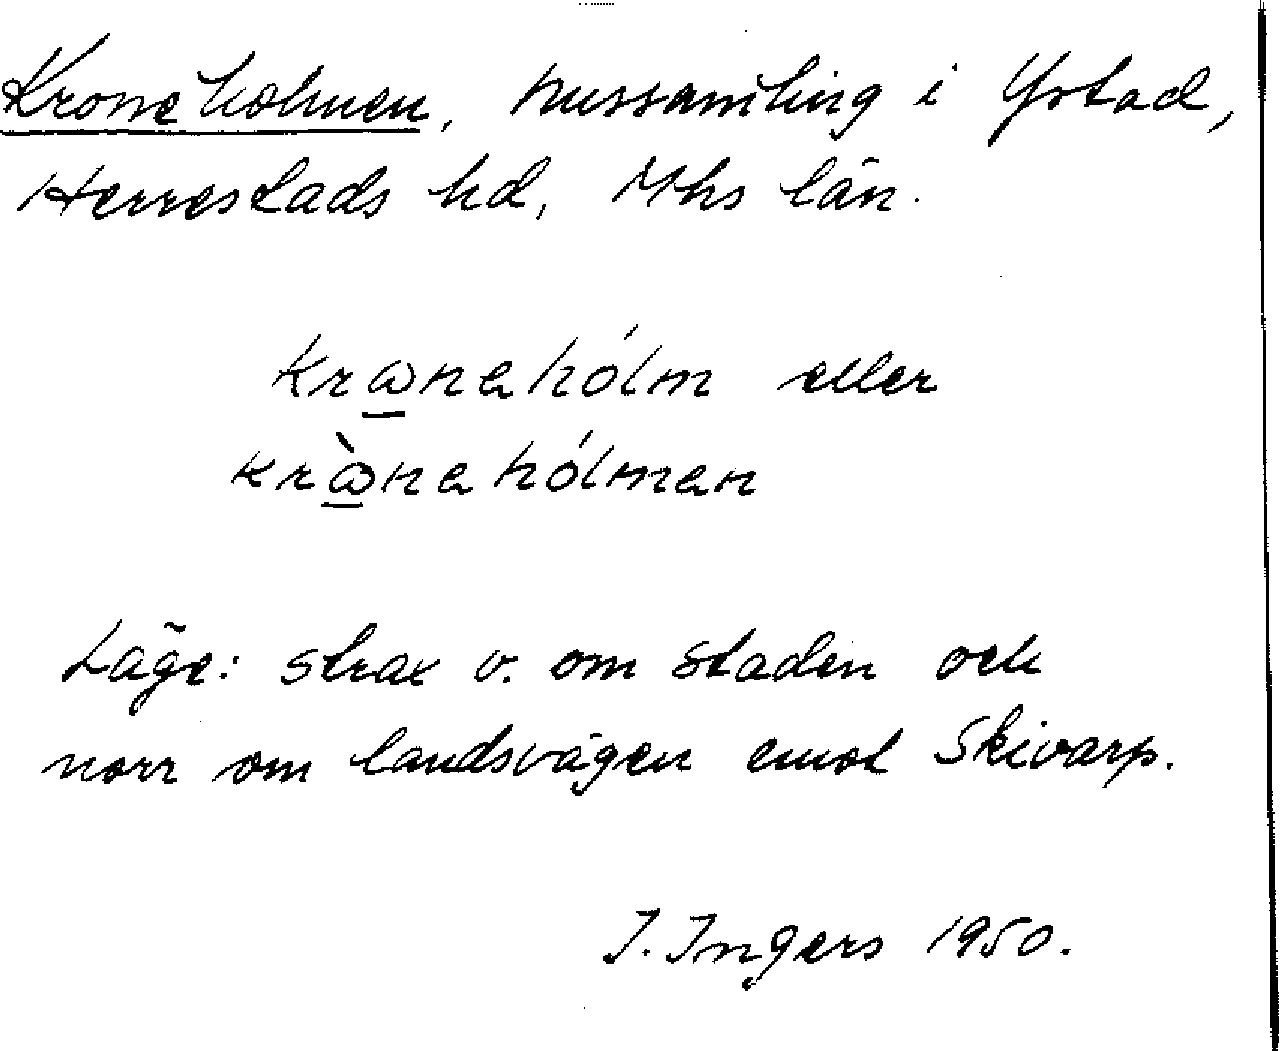 Kroneholmen, hussamling i Ystad,
Herrestads hd, Mhs län.
krωneholm eller
krὼneholmen
Läge: strax v. om staden och
norr om landsvägen emot Skivarp.
I. Ingers 1950.